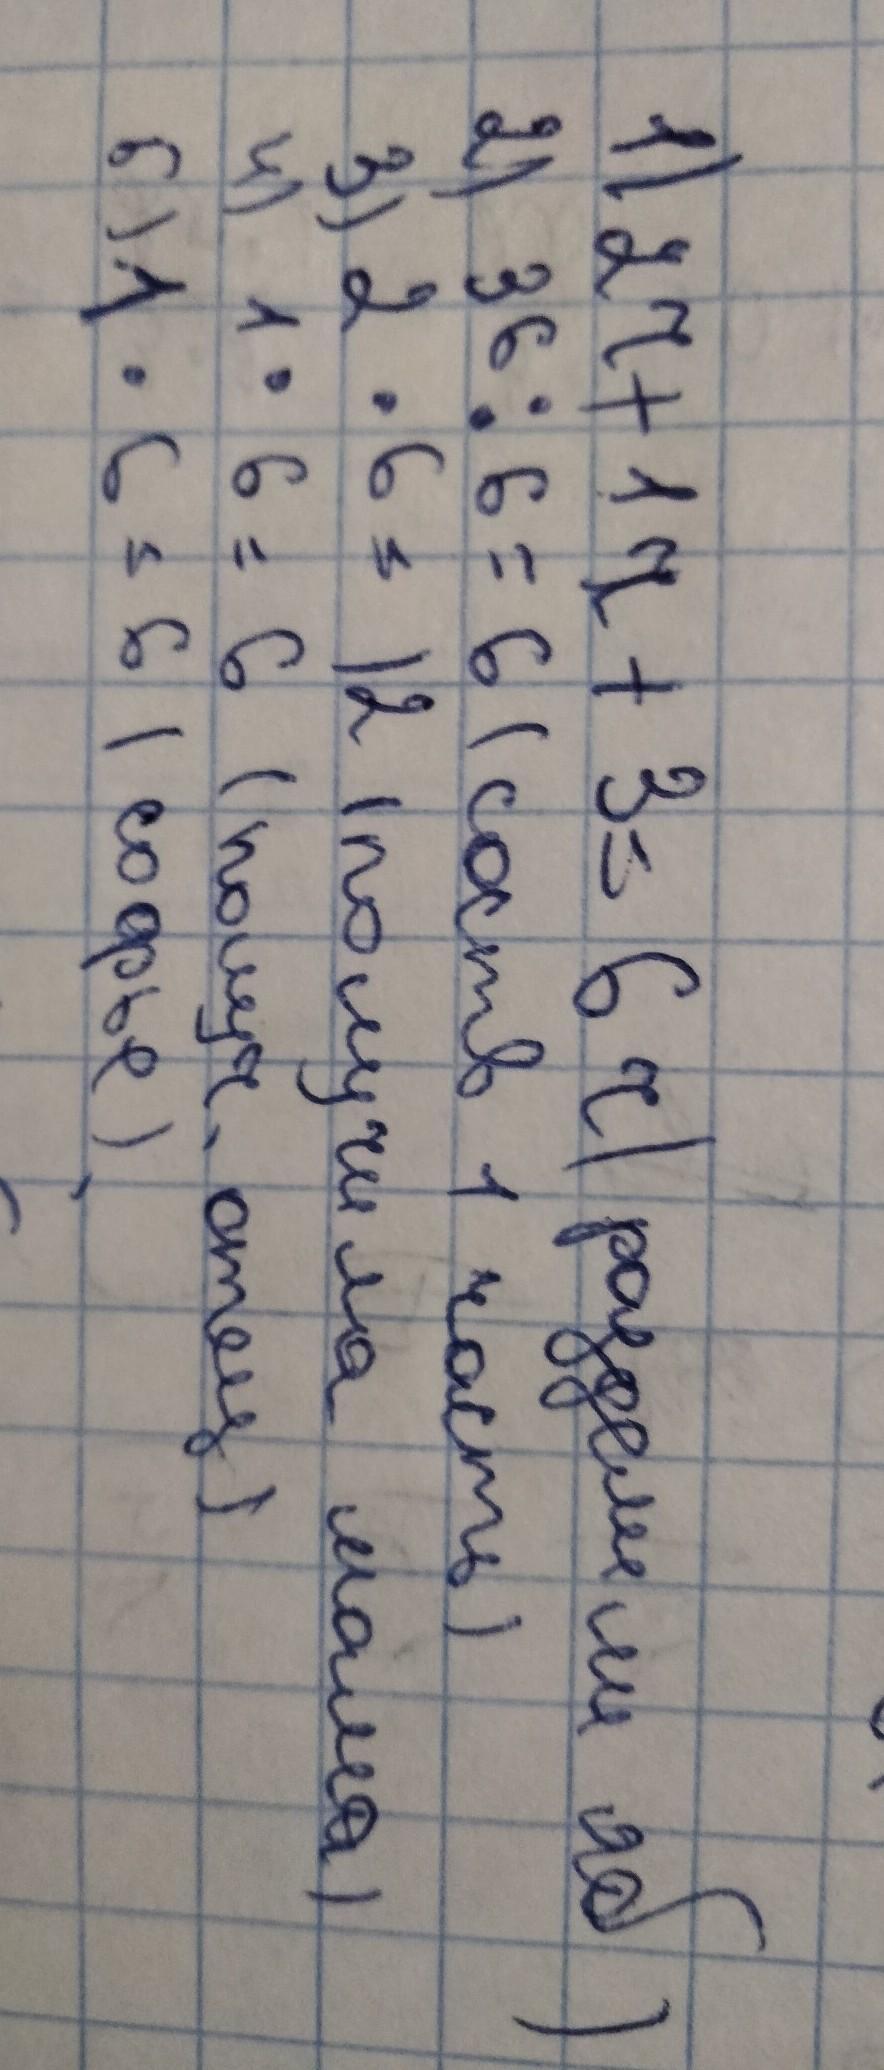 1) 2ч + 1ч + 3 = 6ч (разделили яб)
2) 36 : 6 = 6 (соств 1 часть)
3) 2 · 6 = 12 (получила мама)
4) 1 · 6 = 6 (получ. отец)
6) 1 · 6 = 6 (софье),